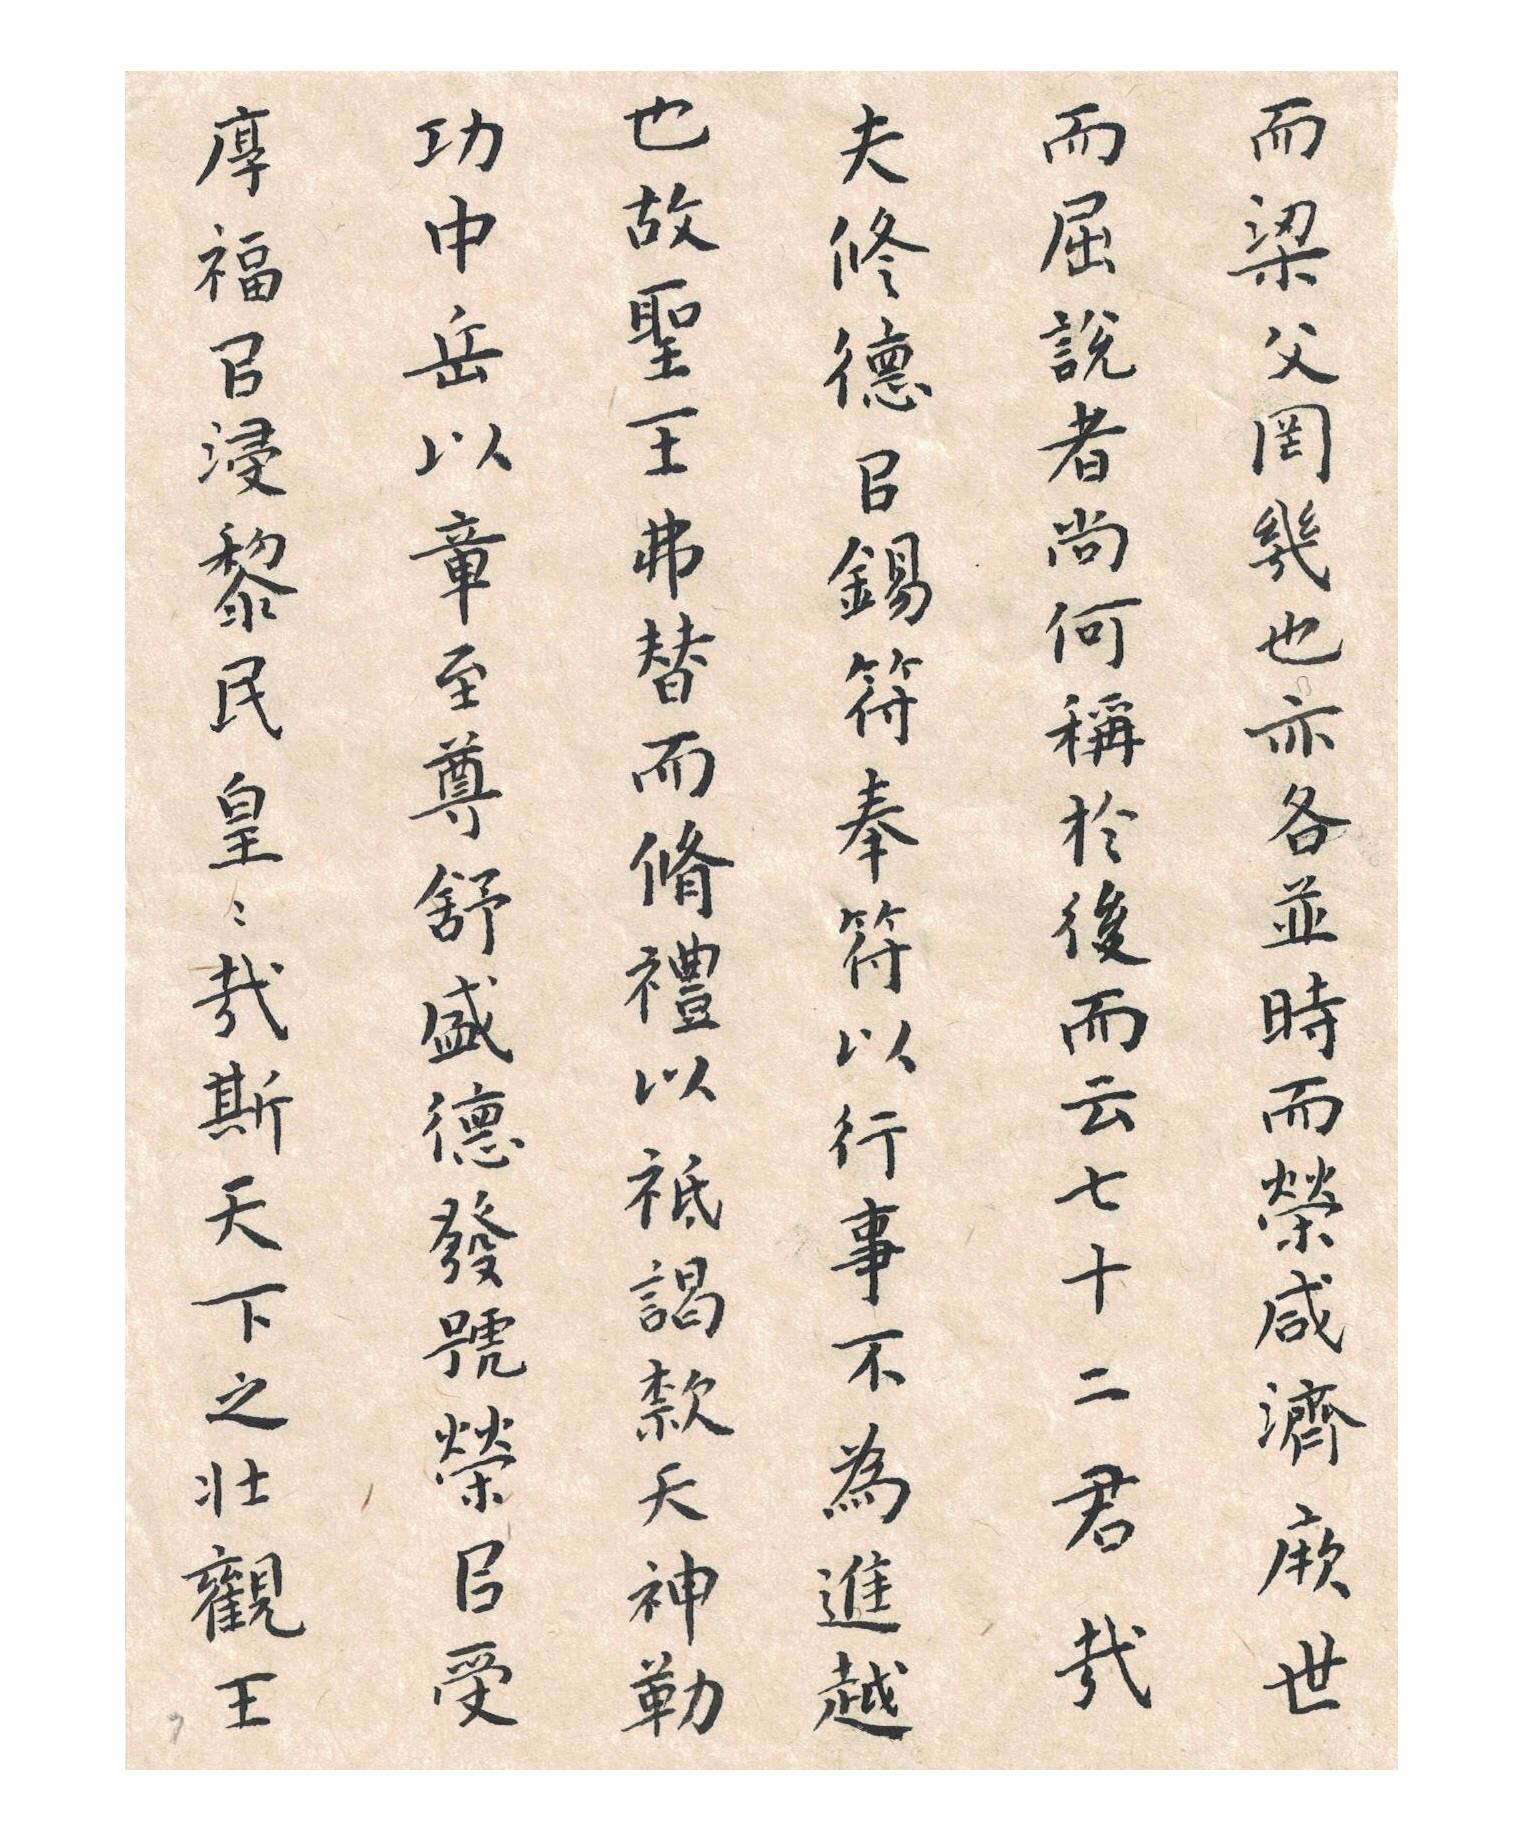 而梁父罔幾也亦各並時而榮咸濟厥世
而屈說者尚何稱於後而云七十二君哉
夫修德㠯錫符奉符以行事不為進越
也故聖王弗替而脩禮以祗謁款天神勒
功中岳以章至尊舒盛德發號榮㠯受
厚福㠯浸黎民皇〻哉斯天下之壯觀王